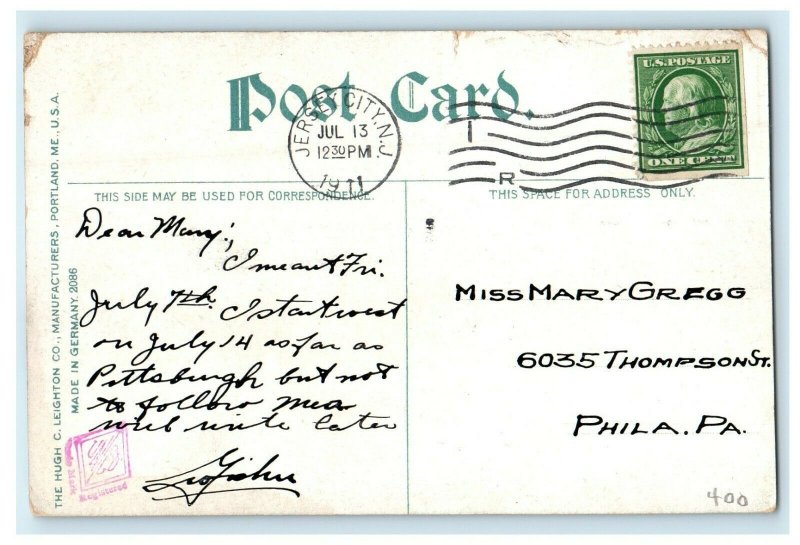 Post Card.
U.S. POSTAGE
ONE CENT
JERSEY CITY, N.J.
JUL 13
12 30 PM
1911
I
R
THIS SIDE MAY BE USED FOR CORRESPONDENCE.
THIS SPACE FOR ADDRESS ONLY.
THE HUGH C. LEIGHTON CO., MANUFACTURERS, PORTLAND, ME., U.S.A.
MADE IN GERMANY. 2086
Dear Mary;
I meant Fri.
July 7th. I start west
on July 14 as far as
Pittsburgh but not
to follow
will write later
MISS MARY GREGG
6035 THOMPSON ST.
PHILA. PA.
Trade Mark
Registered
400